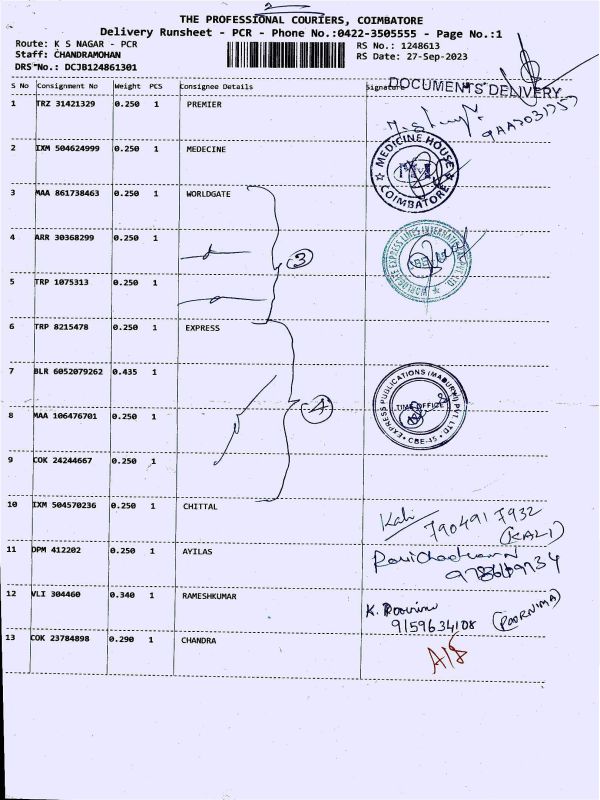 2
THE PROFESSIONAL COURIERS, COIMBATORE
Delivery Runsheet - PCR - Phone No.:0422-3505555 - Page No.:1
Route: K S NAGAR - PCR
RS No.: 1248613
Staff: CHANDRAMOHAN
RS Date: 27-Sep-2023
DRS No.: DCJB124861301
S No Consignment No Weight PCS Consignee Details Signature
DOCUMENTS DELIVERY
1 TRZ 31421329 0.250 1 PREMIER
2 IXM 504624999 0.250 1 MEDECINE
MEDICINE HOUSE
COIMBATORE
3 MAA 861738463 0.250 1 WORLDGATE
4 ARR 30368299 0.250 1
3
WORLDGATE EXPRESS LINES INTERNATIONAL PVT LTD
5 TRP 1075313 0.250 1
6 TRP 8215478 0.250 1 EXPRESS
7 BLR 6052079262 0.435 1
4
EXPRESS PUBLICATIONS (MADURAI) PVT LTD
TIME OFFICE
CBE-45
8 MAA 106476701 0.250 1
9 COK 24244667 0.250 1
10 IXM 504570236 0.250 1 CHITTAL
Kali 790491 7932
(KALI)
11 DPM 412202 0.250 1 AYILAS
12 VLI 304460 0.340 1 RAMESHKUMAR
9159634108 (POORNIMA)
13 COK 23784898 0.290 1 CHANDRA